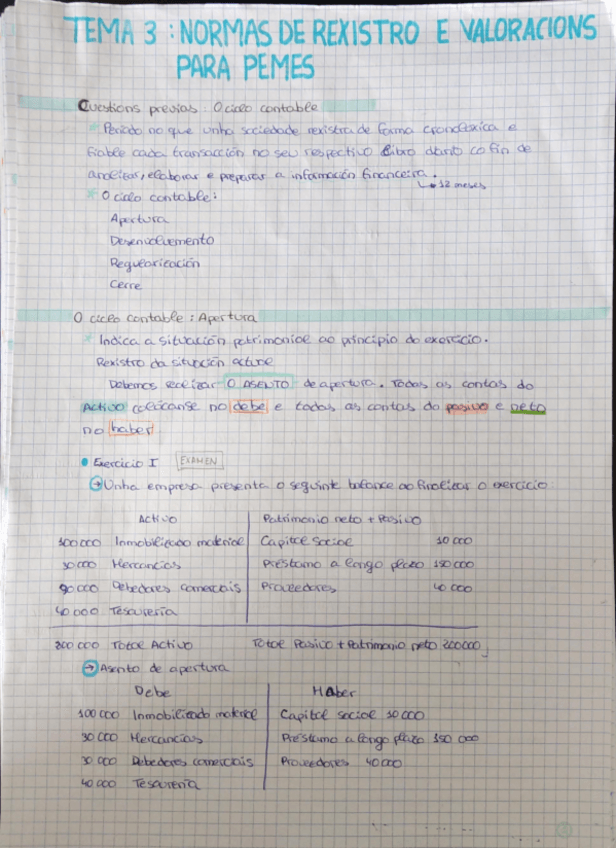 TEMA 3 : NORMAS DE REXISTRO E VALORACIONS
PARA PEMES
Cuestions previas. O ciclo contable
* Período no que unha sociedade rexistra de forma cronolóxica e
fiable cada transacción no seu respectivo libro diario co fin de
analizar, elaborar e preparar a información financeira.
↳ 12 meses
* O ciclo contable:
Apertura
Desenvolvemento
Regularización
Cerre
O ciclo contable : Apertura
* Indica a situación patrimonial ao principio do exercicio.
Rexistro da situación actual
Debemos realizar O ASENTO de apertura. Todas as contas do
Activo colócanse no debe e todas as contas do pasivo e neto
no haber
• Exercicio I EXAMEN
→ Unha empresa presenta o seguinte balance ao finalizar o exercicio:
Activo Patrimonio neto + Pasivo
100 000 Inmobilizado material Capital social 10 000
30 000 Mercancías Préstamo a longo plazo 150 000
30 000 Debedores comerciais Proveedores 40 000
40 000 Tesourería
200 000 Total Activo Total Pasivo + Patrimonio neto 200 000
→ Asento de apertura
Debe Haber
100 000 Inmobilizado material Capital social 10 000
30 000 Mercancías Préstamo a longo plazo 150 000
30 000 Debedores comerciais Proveedores 40 000
40 000 Tesourería